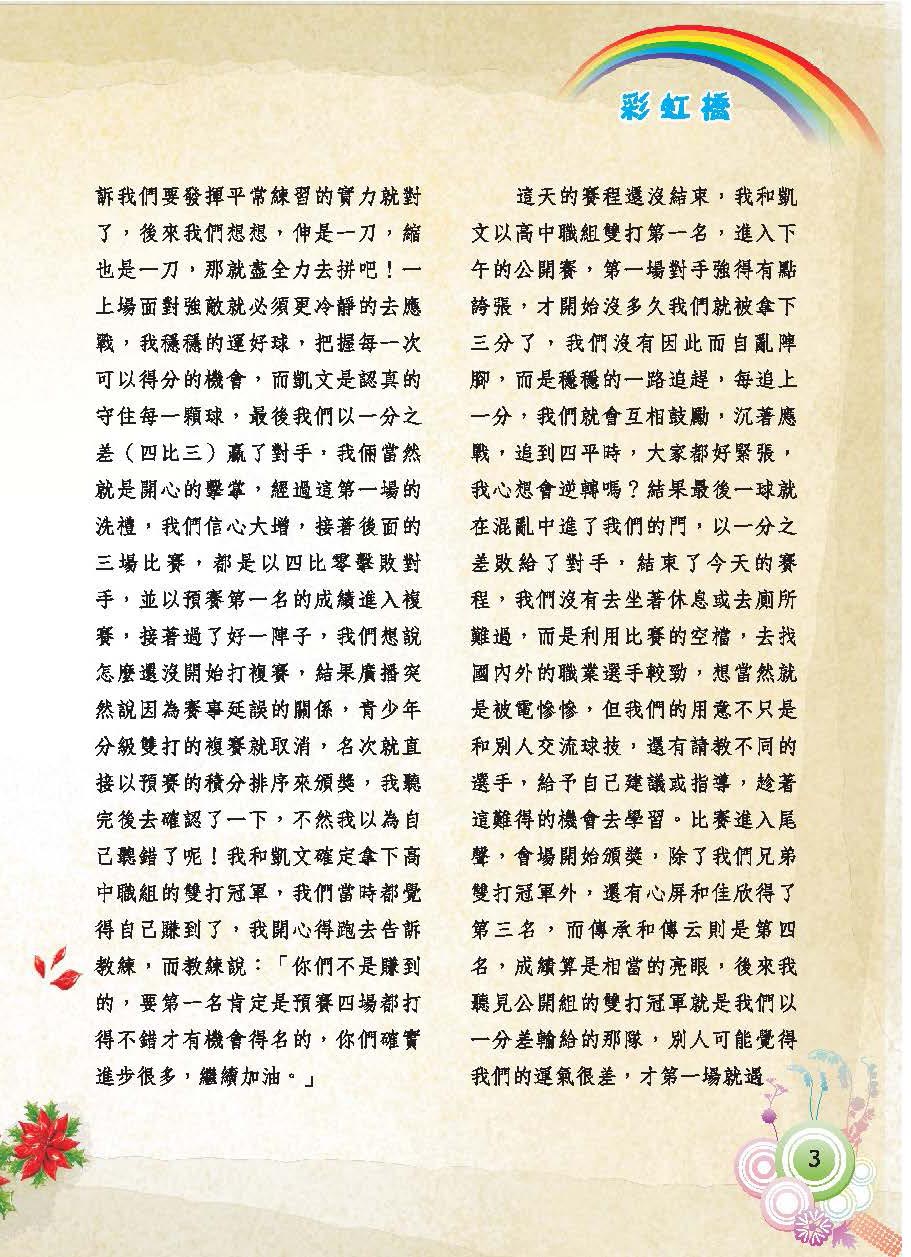 彩虹橋
訴我們要發揮平常練習的實力就對
了，後來我們想想，伸是一刀，縮
也是一刀，那就盡全力去拼吧！一
上場面對強敵就必須更冷靜的去應
戰，我穩穩的運好球，把握每一次
可以得分的機會，而凱文是認真的
守住每一顆球，最後我們以一分之
差（四比三）贏了對手，我倆當然
就是開心的擊掌，經過這第一場的
洗禮，我們信心大增，接著後面的
三場比賽，都是以四比零擊敗對
手，並以預賽第一名的成績進入複
賽，接著過了好一陣子，我們想說
怎麼還沒開始打複賽，結果廣播突
然說因為賽事延誤的關係，青少年
分級雙打的複賽就取消，名次就直
接以預賽的積分排序來頒獎，我聽
完後去確認了一下，不然我以為自
己聽錯了呢！我和凱文確定拿下高
中職組的雙打冠軍，我們當時都覺
得自己賺到了，我開心得跑去告訴
教練，而教練說：「你們不是賺到
的，要第一名肯定是預賽四場都打
得不錯才有機會得名的，你們確實
進步很多，繼續加油。」
這天的賽程還沒結束，我和凱
文以高中職組雙打第一名，進入下
午的公開賽，第一場對手強得有點
誇張，才開始沒多久我們就被拿下
三分了，我們沒有因此而自亂陣
腳，而是穩穩的一路追趕，每追上
一分，我們就會互相鼓勵，沉著應
戰，追到四平時，大家都好緊張，
我心想會逆轉嗎？結果最後一球就
在混亂中進了我們的門，以一分之
差敗給了對手，結束了今天的賽
程，我們沒有去坐著休息或去廁所
難過，而是利用比賽的空檔，去找
國內外的職業選手較勁，想當然就
是被電慘慘，但我們的用意不只是
和別人交流球技，還有請教不同的
選手，給予自己建議或指導，趁著
這難得的機會去學習。比賽進入尾
聲，會場開始頒獎，除了我們兄弟
雙打冠軍外，還有心屏和佳欣得了
第三名，而傳承和傳云則是第四
名，成績算是相當的亮眼，後來我
聽見公開組的雙打冠軍就是我們以
一分差輸給的那隊，別人可能覺得
我們的運氣很差，才第一場就遇
3